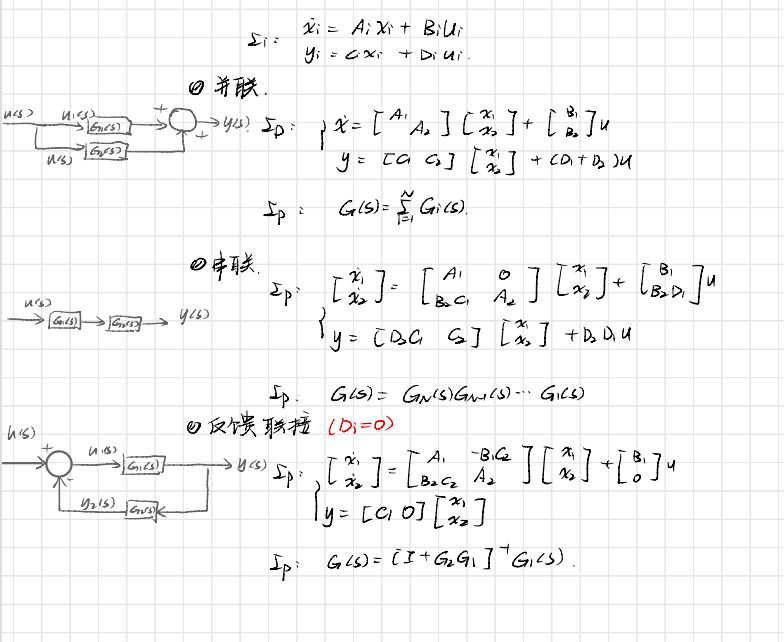 Σi: ẋi = Aixi + Biui
yi = Cixi + Diui.
① 并联.
u(s) u1(s) G1(s) + + y(s)
u(s) G2(s)
Σp: { ẋ = [A1 A2] [x1 x2] + [B1 B2] u
y = [C1 C2] [x1 x2] + (D1 + D2)u
Σp: G(s) = Σ i=1 N Gi(s).
② 串联.
Σp: { [ẋ1 ẋ2] = [A1 0 B2C1 A2] [x1 x2] + [B1 B2D1] u
u(s) G1(s) G2(s) y(s)
y = [D2C1 C2] [x1 x2] + D2D1u
Σp: G(s) = GN(s)GN-1(s)⋯G1(s)
反馈联接 (Di=0)
u(s) + - u1(s) G1(s) y(s)
y2(s) G2(s)
Σp: { [ẋ1 ẋ2] = [A1 -B1C2 B2C2 A2] [x1 x2] + [B1 0] u
y = [C1 0] [x1 x2]
Σp: G(s) = [I + G2G1]⁻¹G1(s).